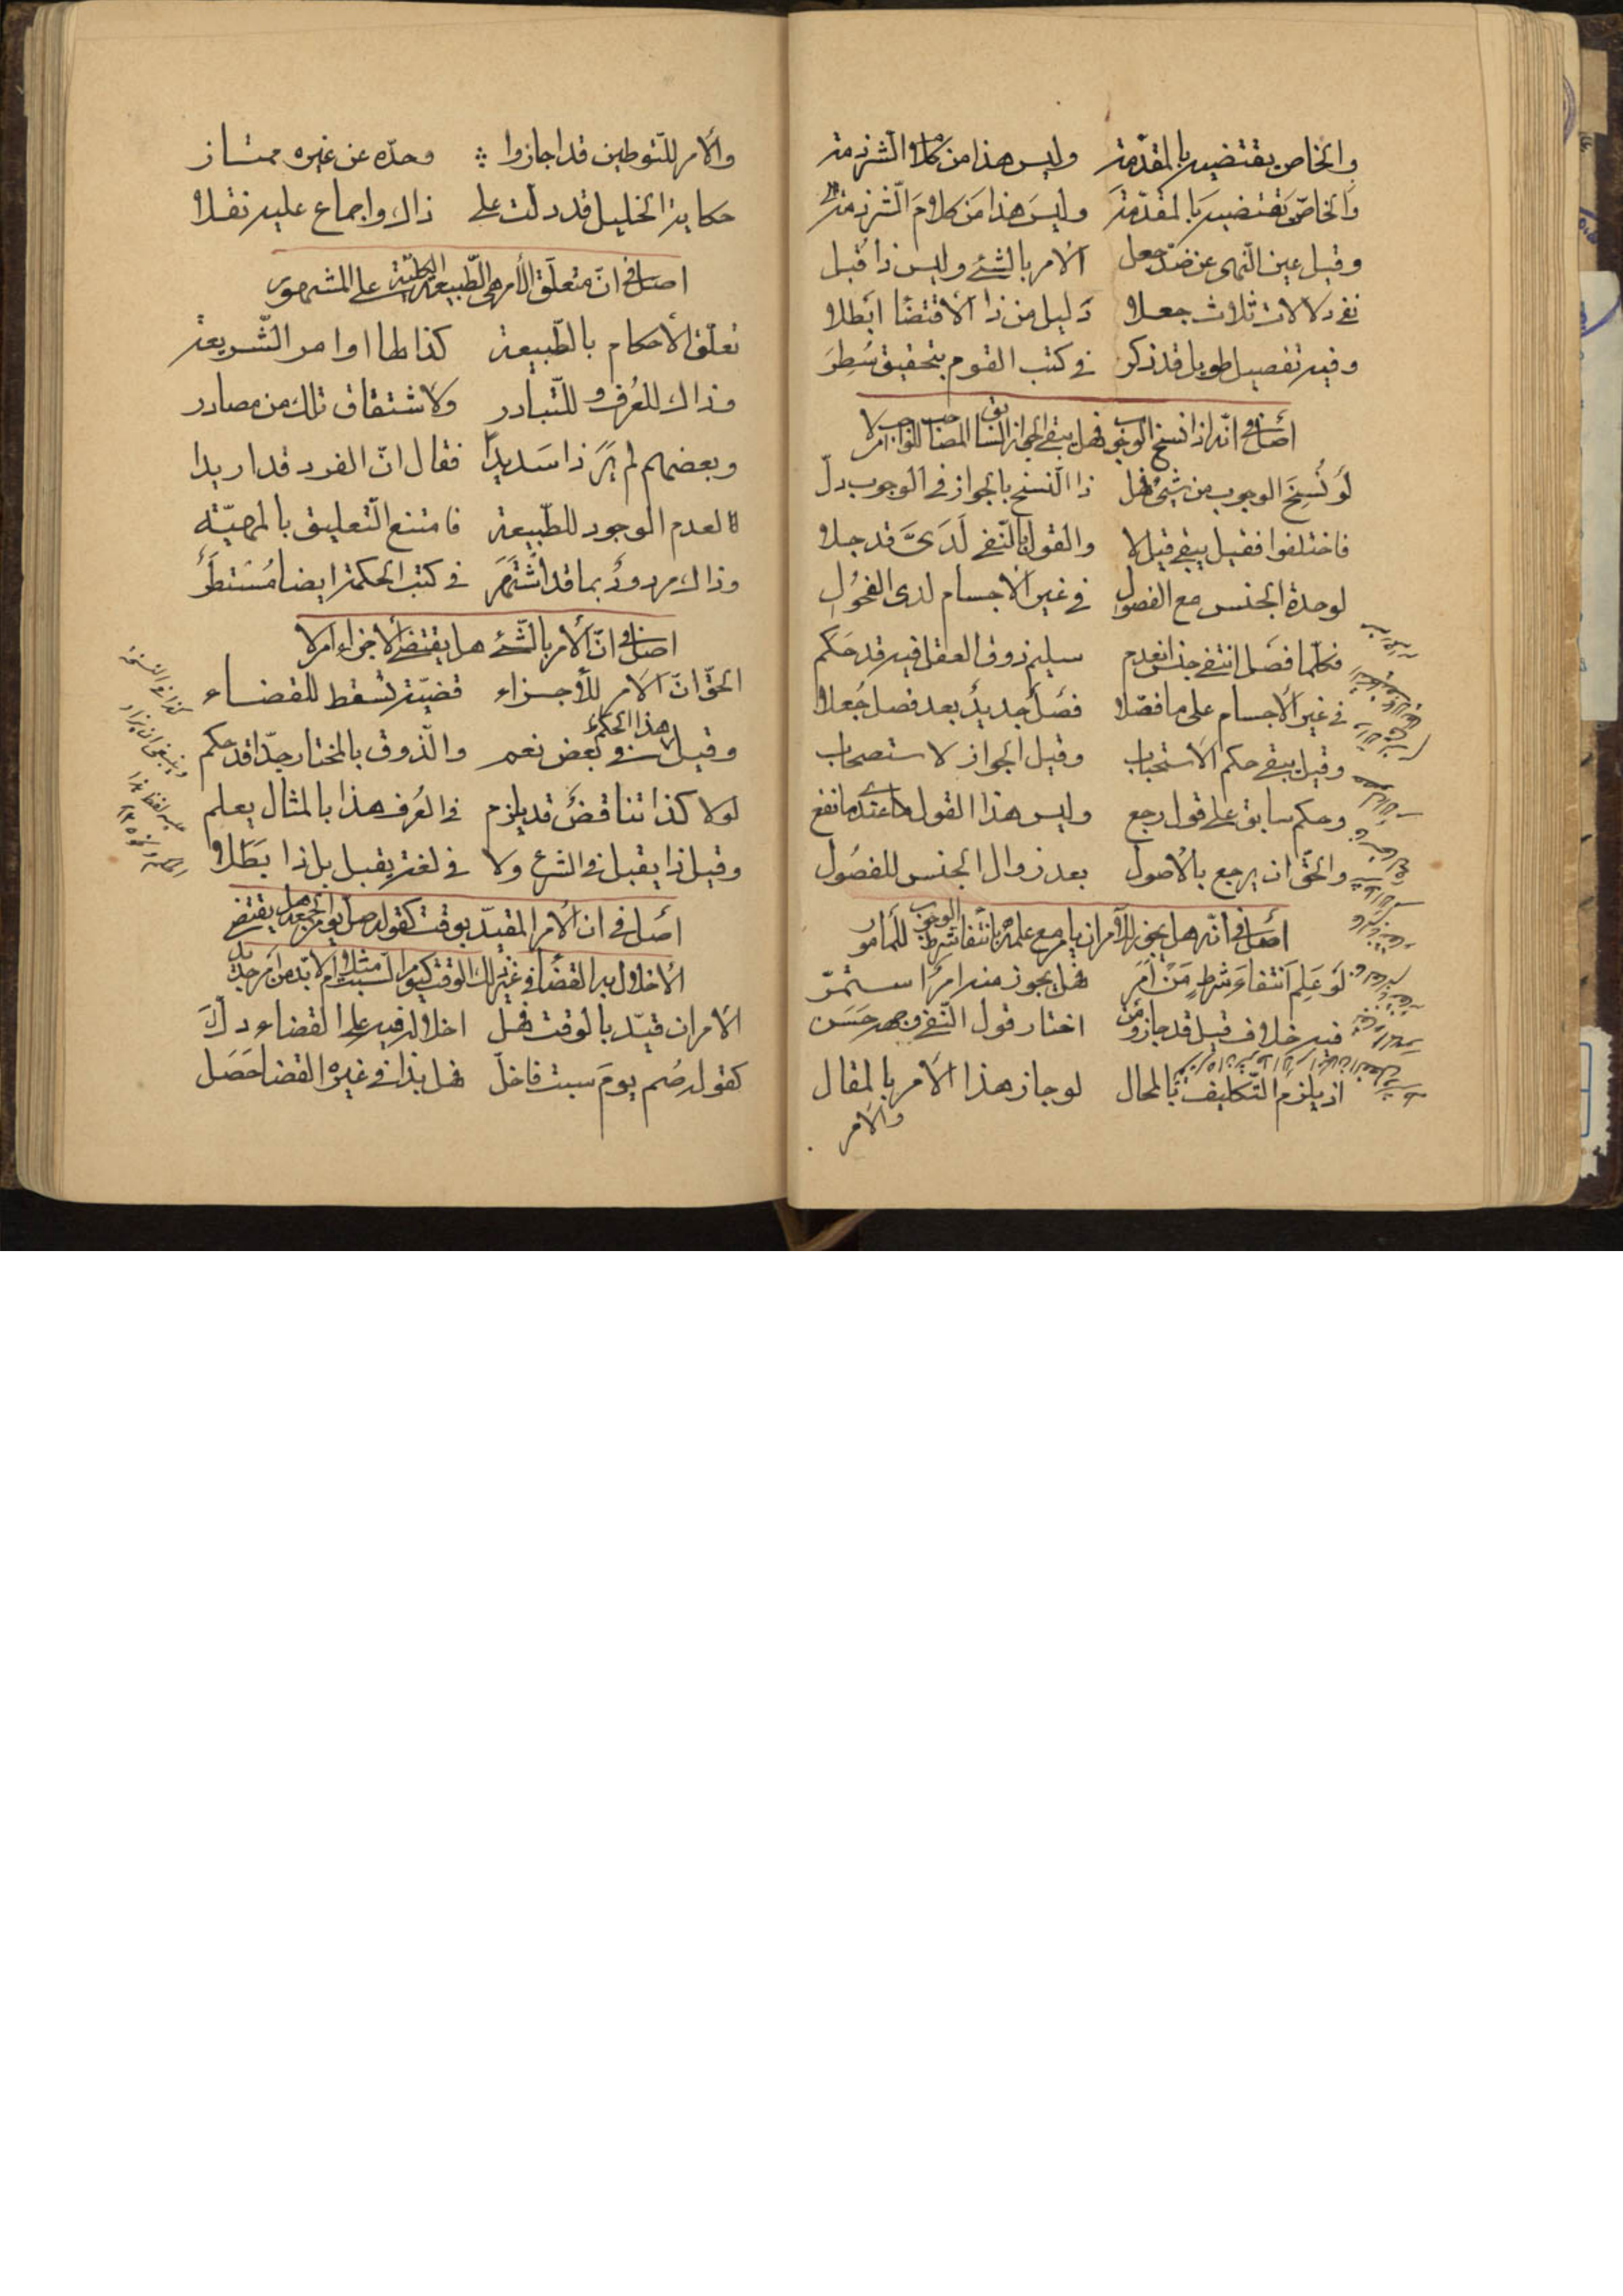 والخاص يقتضيه بالمقدّمة وليس هذا من كلام الشرذمة
والخاصّ يقتضيه بالمقدّمة وليسَ هذا من كلام الشّرذمة
وقيل عين النّهى عن ضدّ جعل الامر بالشئ وليس ذا قبل
نفى دلالات ثلاث جعلا دليل من ذا الاقتضا ابطلا
وفيه تفصيل طويل قد ذكر في كتب القوم بتحقيق سُطِرَ
أصل في انّه اذا نسخ الوجوب فهل يبقى الجواز السابق المصاحب للواجب ام لا
لَو نُسِخَ الوجوب من شئ فهل ذا النّسخ بالجواز في الوجوب دلّ
فاختلفوا فقيل يبقى قيل لا والقول بالنّفى لَدَىَّ قد جلا
لوحدة الجنس مع الفصول في غير الاجسام لدى الفُحُولِ
فكلّما فصل انتفى جنس انعدم سليم ذوق العقل فيه قد حَكَم
في غير الأجسام على ما فصّلا فصل جديدٌ بعد فصل جُعلا
وقيل يبقى حكم الاستحباب وقيل الجواز لاستصحاب
وحكم سابق على قول رجع وليس هذا القول عندى ما نفع
والحقّ ان يرجع بالاصول بعد زوال الجنس للفصُول
أصل في انّه هل يجوز للآمر ان يامر مع علمه بانتفا شرط الوجوب للمأمور
لَو عَلِم انتفاءَ شرطٍ مَنْ أمَر فهل يجوز منه امرًا ستمرّ
فيه خلاف قيل قد جازو من اختار قول النّفى وجهه حَسَن
اذ يلزم التّكليف بالمحال لو جاز هذا الأمر بالمقال
والأمر
والأمر للتّوطين قد اجازوا وحدّه عن غيره ممتاز
حكاية الخليل قد دلت على ذاك واجماع عليه نقلا
اصل في انّ متعلّق الأمر هى الطّبيعة الكليّة على المشهور
تعلّق الأحكام بالطّبيعة كذا لها اوامر الشّريعة
وذاك للعُرف وللتّبادر ولاشتقاق تلك من مصادر
وبعضهم لم يَرَ ذا سَديدًا فقال انّ الفرد قد اريدا
لعدم الوجود للطّبيعة فامتنع التّعليق بالمهيّة
وذاك مردودٌ بما قد اشتَهَر في كتب الحكمة ايضا مُستَطَر
اصل في انّ الأمر بالشّئ هل يقتضى الاجزاء ام لا
الحقّ انّ الامر للأجزاء قضيّة تسقط للقضاء
وقيل لا هذا الحكم في بعض نعم والذّوق بالمختار جدّا قد حكم
لولا كذا تناقضٌ قد يلزم في العُرف هذا بالمثال يعلم
وقيل ذا يقبل في الشرع ولا في لغة يقبل بل ذا بَطَلا
أصل في ان الأمر المقيّد بوقت كقوله صل يوم الجمعة هل يقتضى
الأخلال به القضا في غير ذلك الوقت كيوم السّبت مثلا ام لا بدّ من امر جديد
الأمر ان قيّد بالوقت فهل اخلاله فيه على القضاء دلّ
كقوله صُم يومَ سبت فاخلّ فهل بذا في غيره القضا حَصَل
كذا في النسخة
وينبغى ان يزاد